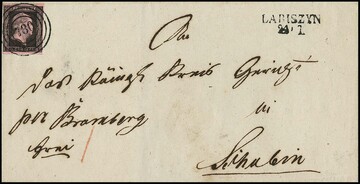 LABISZYN
22/1.
An
Das Königl Kreis Gericht
in
per Bromberg
frei
Schubin